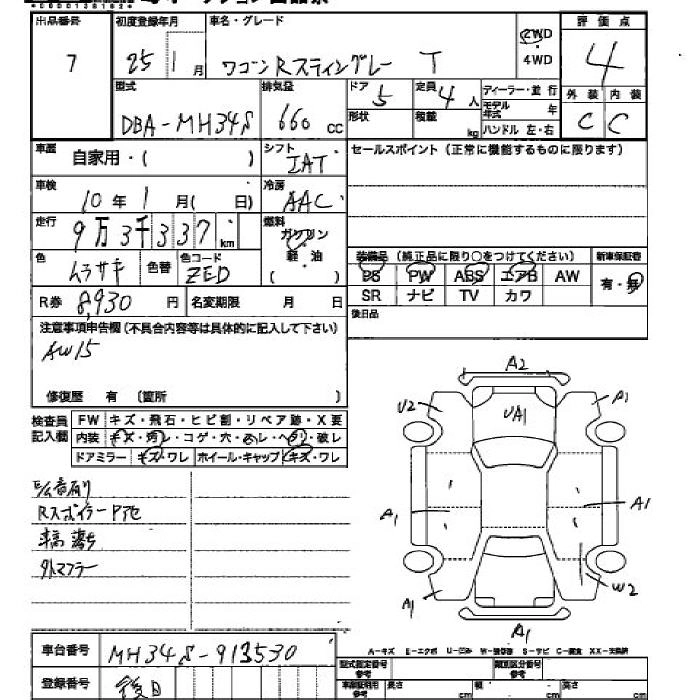 出品番号 初度登録年月 車名・グレード 評価点
7 25 1月 ワゴンRスティングレー T 2WD 4WD 4
型式 排気量 ドア 5 定員 4人 ディーラー・並行 外装 内装
DBA-MH34S 660 cc 形状 積載 kg モデル年式 年 ハンドル 左・右 C C
車歴 自家用・( ) シフト IAT セールスポイント(正常に機能するものに限ります)
車検 10年 1月( 日) 冷房 AAC
走行 9万3千337 km 燃料 ガソリン
軽・油
( )
色 ムラサキ 色替 色コード ZED
装備品(純正品に限り○をつけてください) 新車保証書
PS PW ABS エアB AW 有・無
SR ナビ TV カワ
R券 8,930円 名変期限 月 日 後日品
注意事項申告欄(不具合内容等は具体的に記入して下さい)
AW15
修復歴 有 (箇所 )
検査員記入欄 FW キズ・飛石・ヒビ割・リペア跡・X要
内装 キズ・汚レ・コゲ・穴・ヌレ・ヘタリ・破レ
ドアミラー キズ・ワレ ホイール・キャップ キズ・ワレ
A2
U2 UA1 A1
A1 A1
A1 W2
A1
Rスポイラー
車高落ち
外マフラー
A-キズ E-エクボ U-凹み W-補修跡 S-サビ C-腐食 XX-交換済
車台番号 MH34S-913530
型式指定番号 参考 類別区分番号 参考
登録番号 後日
車検証明用 参考 長さ cm 幅 cm 高さ cm